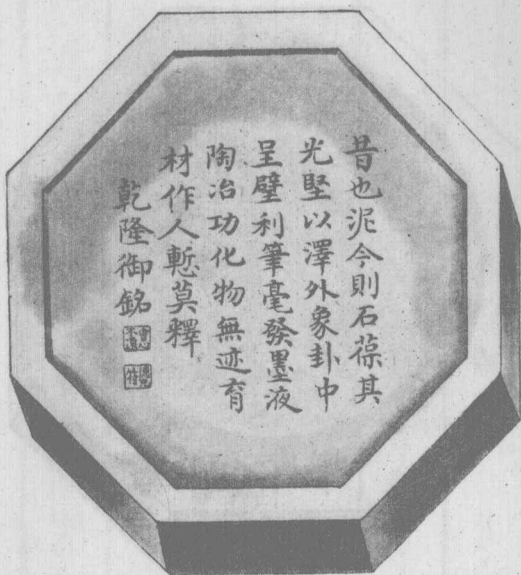 昔也泥今則石葆其
光堅以澤外象卦中
呈璧利筆毫發墨液
陶冶功化物無迹育
材作人慙莫釋
乾隆御銘
會心不遠
德充符